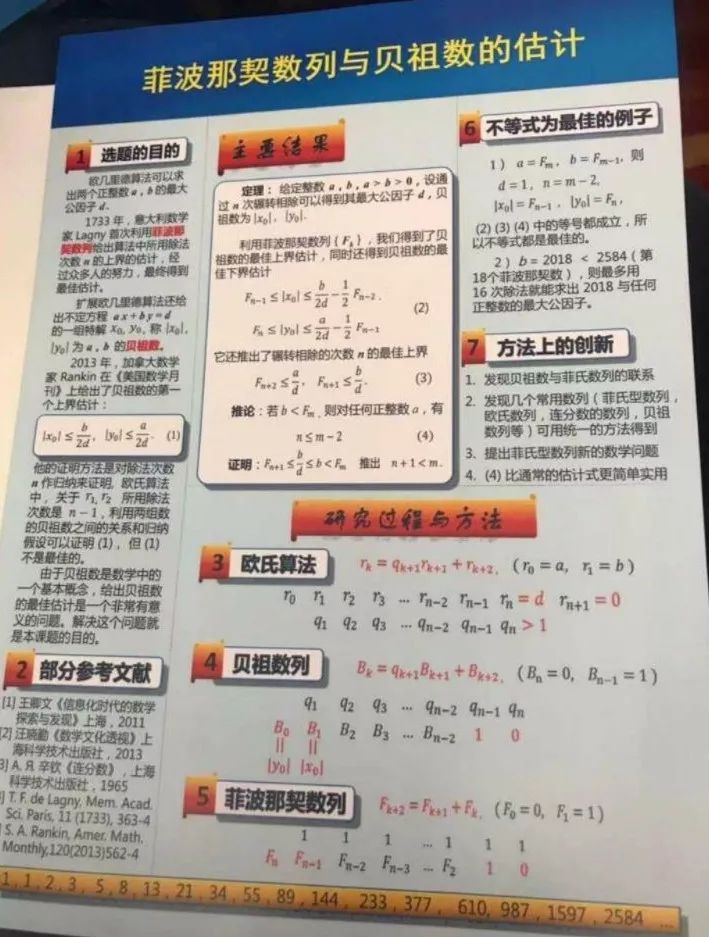 菲波那契数列与贝祖数的估计
1 选题的目的
欧几里德算法可以求
出两个正整数 a，b 的最大
公因子 d.
1733 年，意大利数学
家 Lagny 首次利用菲波那
契数列给出算法中所用除法
次数 n 的上界的估计，经
过众多人的努力，最终得到
最佳估计。
扩展欧几里德算法还给
出不定方程 ax+by=d
的一组特解 x₀, y₀, 称 |x₀|,
|y₀| 为 a，b 的贝祖数。
2013 年，加拿大数学
家 Rankin 在《美国数学月
刊》上给出了贝祖数的第一
个上界估计：
|x₀| ≤ b/2d, |y₀| ≤ a/2d. (1)
他的证明方法是对除法次数
n 作归纳来证明, 欧氏算法
中，关于 r₁, r₂ 所用除法
次数是 n−1，利用两组数
的贝祖数之间的关系和归纳
假设可以证明 (1)，但 (1)
不是最佳的。
由于贝祖数是数学中的
一个基本概念，给出贝祖数
的最佳估计是一个非常有意
义的问题。解决这个问题就
是本课题的目的。
2 部分参考文献
[1] 王卿文《信息化时代的数学
探索与发现》上海，2011
[2] 汪晓勤《数学文化透视》上
海科学技术出版社，2013
3] А. Я. 辛钦《连分数》，上海
科学技术出版社，1965
] T. F. de Lagny, Mem. Acad.
Sci. Paris, 11 (1733), 363-4
] S. A. Rankin, Amer. Math.
Monthly,120(2013)562-4
主要结果
定理：给定整数 a，b，a > b > 0，设通
过 n 次辗转相除可以得到其最大公因子 d，贝
祖数为 |x₀|，|y₀|.
利用菲波那契数列 {Fₖ}，我们得到了贝
祖数的最佳上界估计，同时还得到贝祖数的最
佳下界估计
Fₙ₋₁ ≤ |x₀| ≤ b/2d − 1/2 Fₙ₋₂,
(2)
Fₙ ≤ |y₀| ≤ a/2d − 1/2 Fₙ₋₁
它还推出了辗转相除的次数 n 的最佳上界
Fₙ₊₂ ≤ a/d, Fₙ₊₁ ≤ b/d. (3)
推论：若 b < Fₘ , 则对任何正整数 a，有
n ≤ m − 2 (4)
证明：Fₙ₊₁ ≤ b/d ≤ b < Fₘ 推出 n + 1 < m.
6 不等式为最佳的例子
1） a = Fₘ，b = Fₘ₋₁, 则
d = 1，n = m − 2,
|x₀| = Fₙ₋₁，|y₀| = Fₙ,
(2) (3) (4) 中的等号都成立，所
以不等式都是最佳的。
2）b = 2018 < 2584（第
18个菲波那契数），则最多用
16 次除法就能求出 2018 与任何
正整数的最大公因子。
7 方法上的创新
1. 发现贝祖数与菲氏数列的联系
2. 发现几个常用数列（菲氏型数列，
欧氏数列，连分数的数列，贝祖
数列等）可用统一的方法得到
3. 提出菲氏型数列新的数学问题
4. (4) 比通常的估计式更简单实用
研究过程与方法
3 欧氏算法 rₖ = qₖ₊₁rₖ₊₁ + rₖ₊₂,（r₀ = a, r₁ = b）
r₀ r₁ r₂ r₃ … rₙ₋₂ rₙ₋₁ rₙ = d rₙ₊₁ = 0
q₁ q₂ q₃ … qₙ₋₂ qₙ₋₁ qₙ > 1
4 贝祖数列 Bₖ = qₖ₊₁Bₖ₊₁ + Bₖ₊₂,（Bₙ = 0, Bₙ₋₁ = 1）
q₁ q₂ q₃ … qₙ₋₂ qₙ₋₁ qₙ
B₀ B₁ B₂ B₃ … Bₙ₋₂ 1 0
|| ||
|y₀| |x₀|
5 菲波那契数列 Fₖ₊₂ = Fₖ₊₁ + Fₖ,（F₀ = 0, F₁ = 1）
1 1 1 … 1 1 1
Fₙ Fₙ₋₁ Fₙ₋₂ Fₙ₋₃ … F₂ 1 0
1, 1, 2, 3, 5, 8, 13, 21, 34, 55, 89, 144, 233, 377, 610, 987, 1597, 2584 …